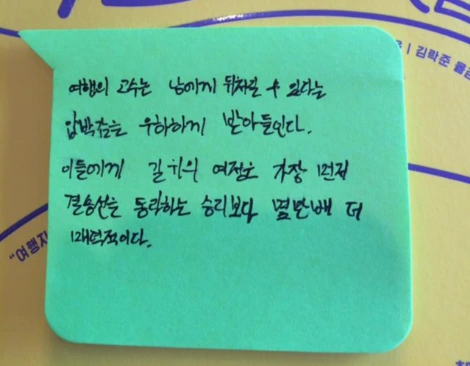 | 김락준 옮김
여행의 고수는 남에게 뒤처질 수 있다는
압박감을 우아하게 받아들인다.
이들에게 길 위의 여정은 가장 먼저
결승선을 통과하는 승리보다 몇만배 더
매력적이다.
"여행자